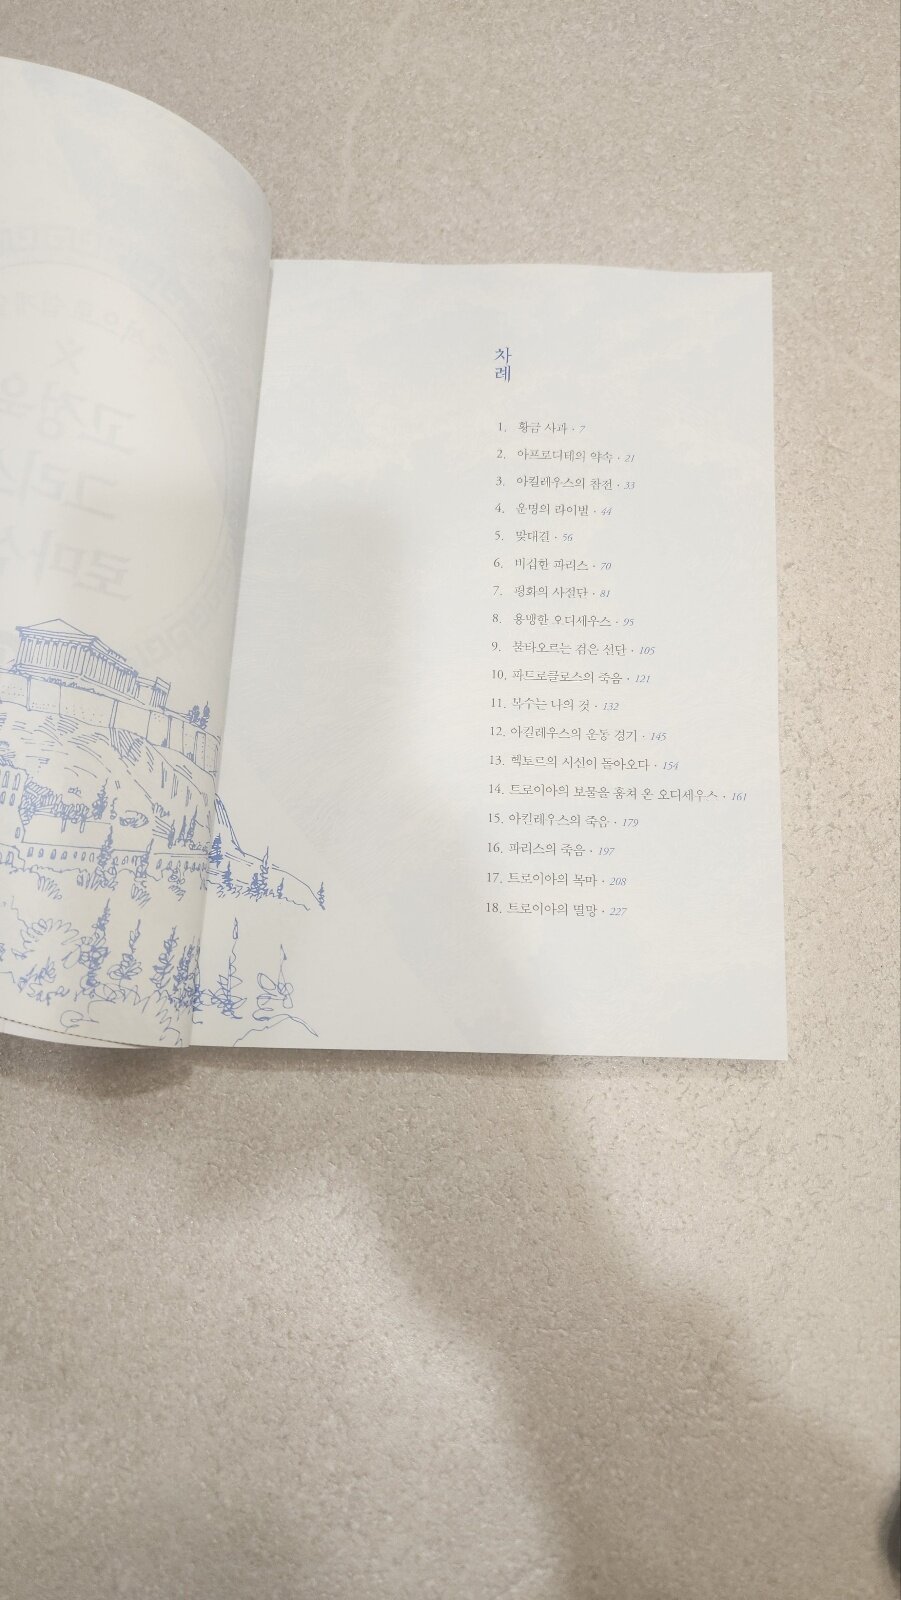 차
례
1. 황금 사과 · 7
2. 아프로디테의 약속 · 21
3. 아킬레우스의 참전 · 33
4. 운명의 라이벌 · 44
5. 맞대결 · 56
6. 비겁한 파리스 · 70
7. 평화의 사절단 · 81
8. 용맹한 오디세우스 · 95
9. 불타오르는 검은 선단 · 105
10. 파트로클로스의 죽음 · 121
11. 복수는 나의 것 · 132
12. 아킬레우스의 운동 경기 · 145
13. 헥토르의 시신이 돌아오다 · 154
14. 트로이아의 보물을 훔쳐 온 오디세우스 · 161
15. 아킬레우스의 죽음 · 179
16. 파리스의 죽음 · 197
17. 트로이아의 목마 · 208
18. 트로이아의 멸망 · 227